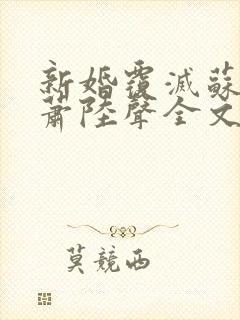 新婚覆滅蘇
蕭陸聲全文
莫競西